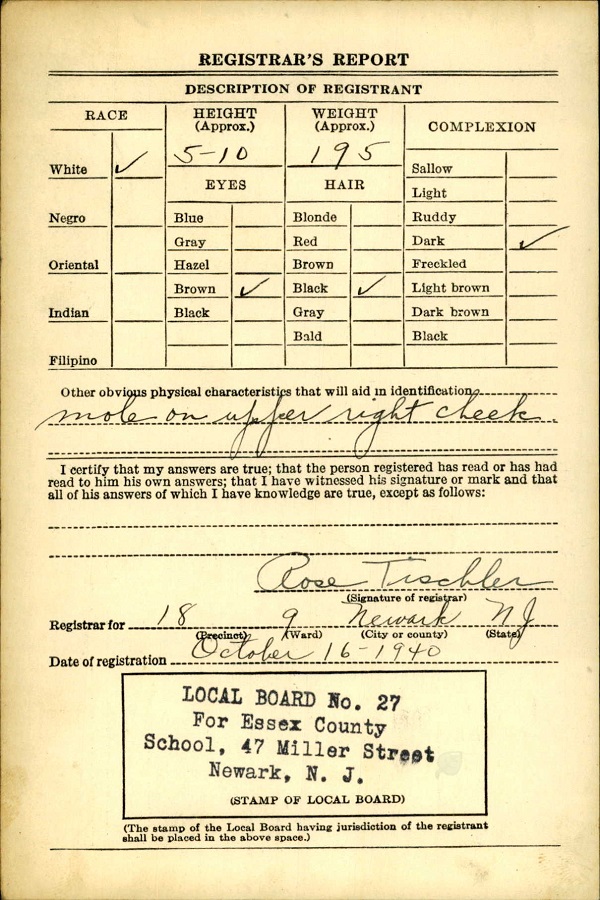 REGISTRAR'S REPORT
DESCRIPTION OF REGISTRANT
RACE
HEIGHT
(Approx.)
WEIGHT
(Approx.)
COMPLEXION
5-10
195
White ✓
EYES
HAIR
Sallow
Light
Negro
Blue
Blonde
Ruddy
Gray
Red
Dark ✓
Oriental
Hazel
Brown
Freckled
Brown ✓
Black ✓
Light brown
Indian
Black
Gray
Dark brown
Bald
Black
Filipino
Other obvious physical characteristics that will aid in identification
mole on upper right cheek.
I certify that my answers are true; that the person registered has read or has had
read to him his own answers; that I have witnessed his signature or mark and that
all of his answers of which I have knowledge are true, except as follows:
Rose Tischler
(Signature of registrar)
Registrar for 18 9 Newark NJ
(Precinct) (Ward) (City or county) (State)
Date of registration October 16-1940
LOCAL BOARD No. 27
For Essex County
School, 47 Miller Street
Newark, N. J.
(STAMP OF LOCAL BOARD)
(The stamp of the Local Board having jurisdiction of the registrant
shall be placed in the above space.)